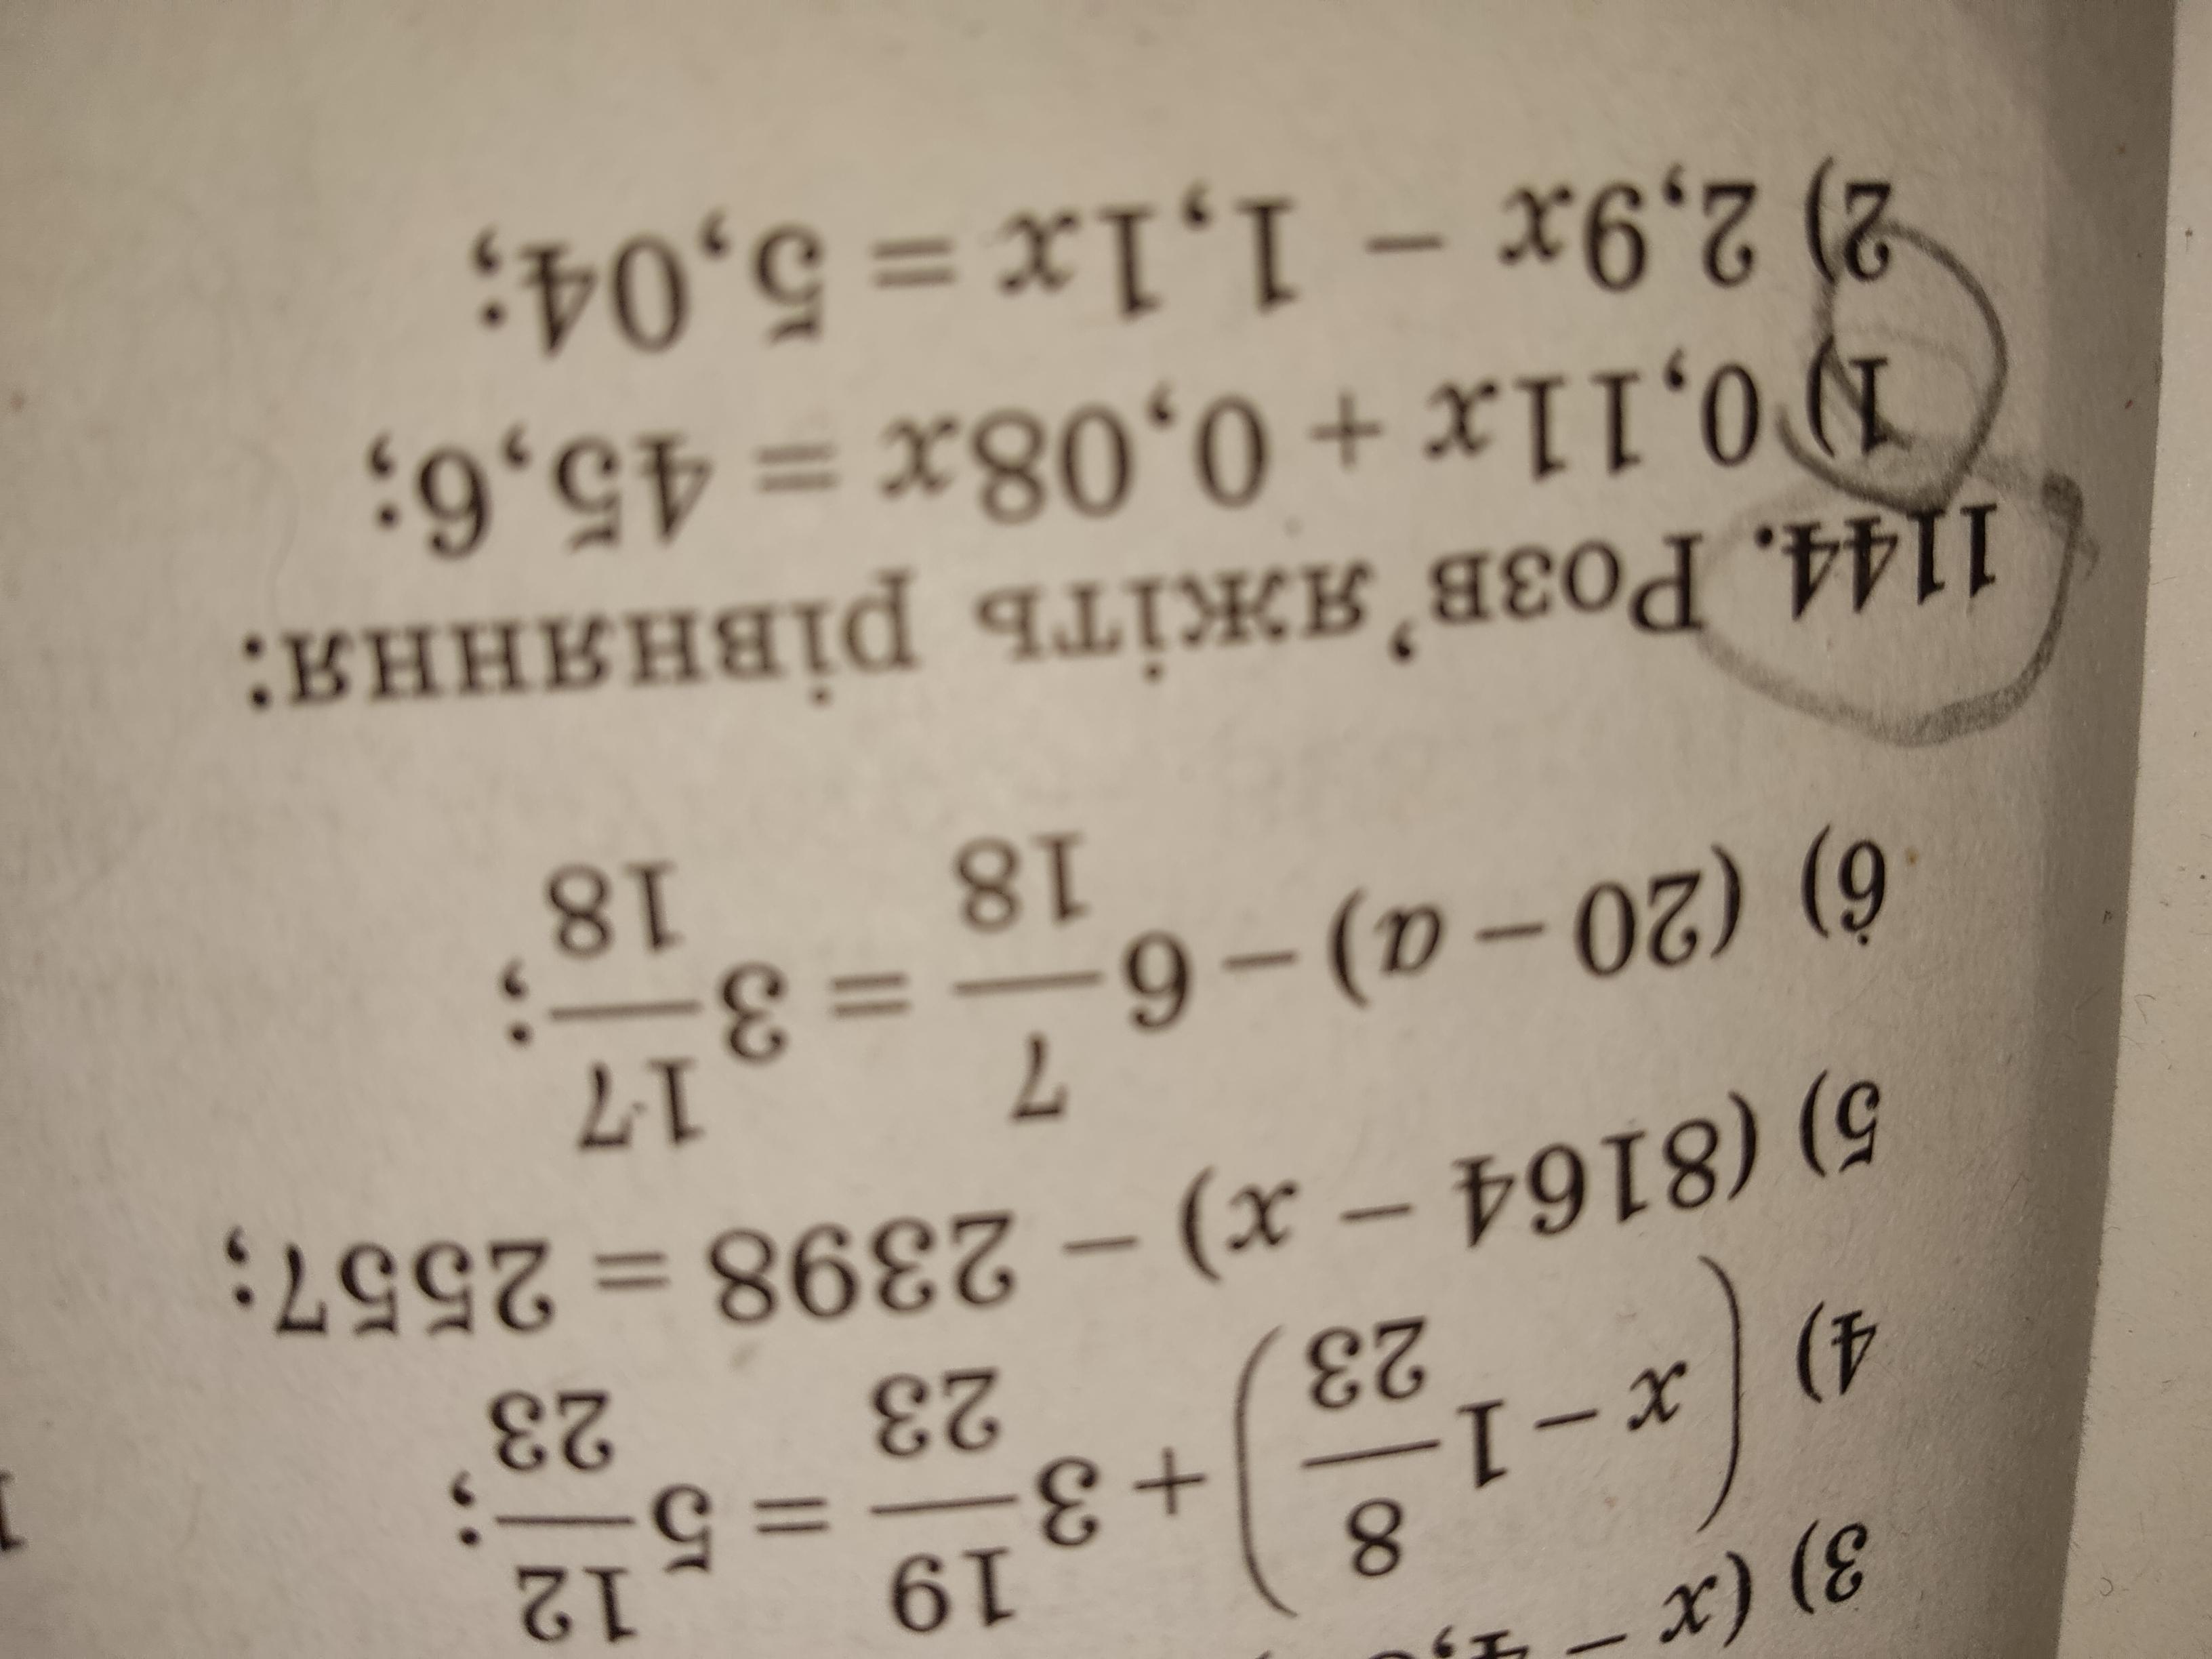 3) (x − 4,
4) (x − 1 8/23) + 3 19/23 = 5 12/23;
5) (8164 − x) − 2398 = 2557;
6) (20 − a) − 6 7/18 = 3 17/18;
1144. Розв’яжіть рівняння:
1) 0,11x + 0,08x = 45,6;
2) 2,9x − 1,1x = 5,04;